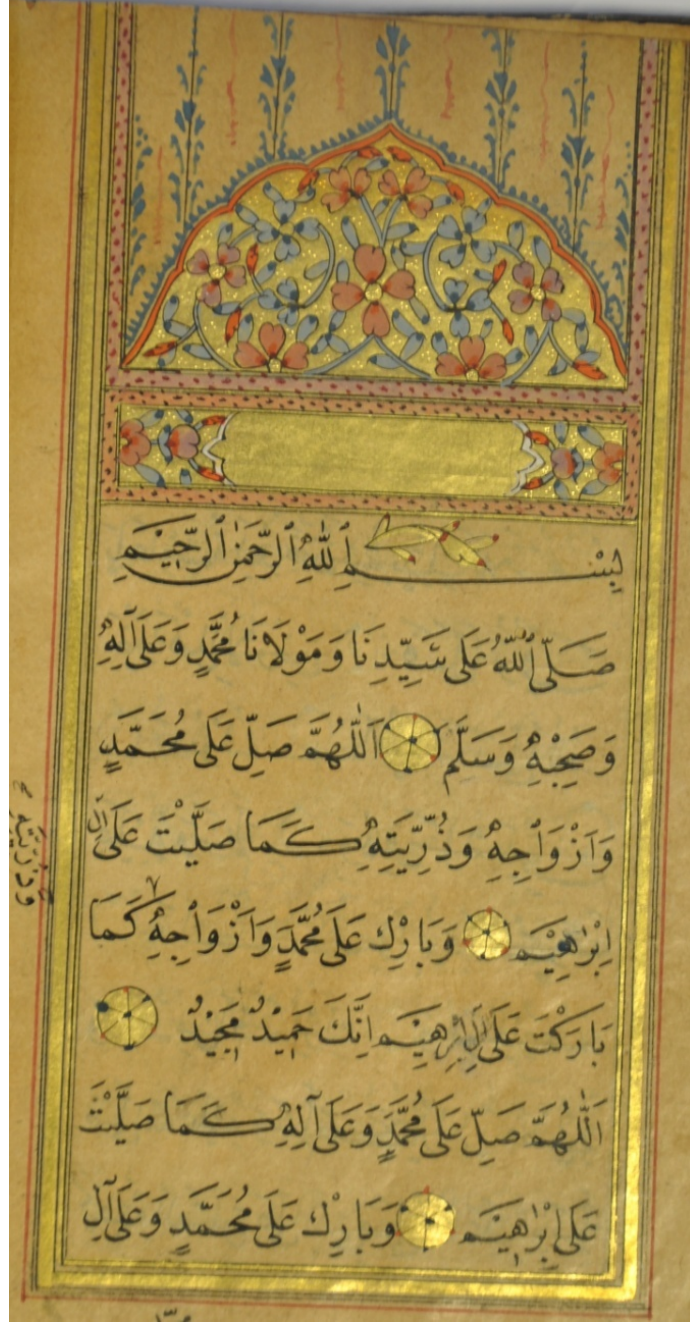 بِسْمِ ٱللّٰهِ ٱلرَّحْمٰنِ ٱلرَّحِيْمِ
صَلَّى ٱللّٰهُ عَلَى سَيِّدِنَا وَمَوْلَانَا مُحَمَّدٍ وَعَلَى آلِهِ
وَصَحْبِهِ وَسَلَّمَ اَللّٰهُمَّ صَلِّ عَلَى مُحَمَّدٍ
وَاَزْوَاجِهِ وَذُرِّيَّتِهِ كَمَا صَلَّيْتَ عَلَى اٰلِ
اِبْرٰهِيْمَ وَبَارِكْ عَلَى مُحَمَّدٍ وَاَزْوَاجِهِ كَمَا
وَذُرِّيَّتِهِ
بَارَكْتَ عَلَى اٰلِ اِبْرٰهِيْمَ اِنَّكَ حَمِيْدٌ مَجِيْدٌ
اَللّٰهُمَّ صَلِّ عَلَى مُحَمَّدٍ وَعَلَى آلِهِ كَمَا صَلَّيْتَ
عَلَى اِبْرٰهِيْمَ وَبَارِكْ عَلَى مُحَمَّدٍ وَعَلَى آلِ